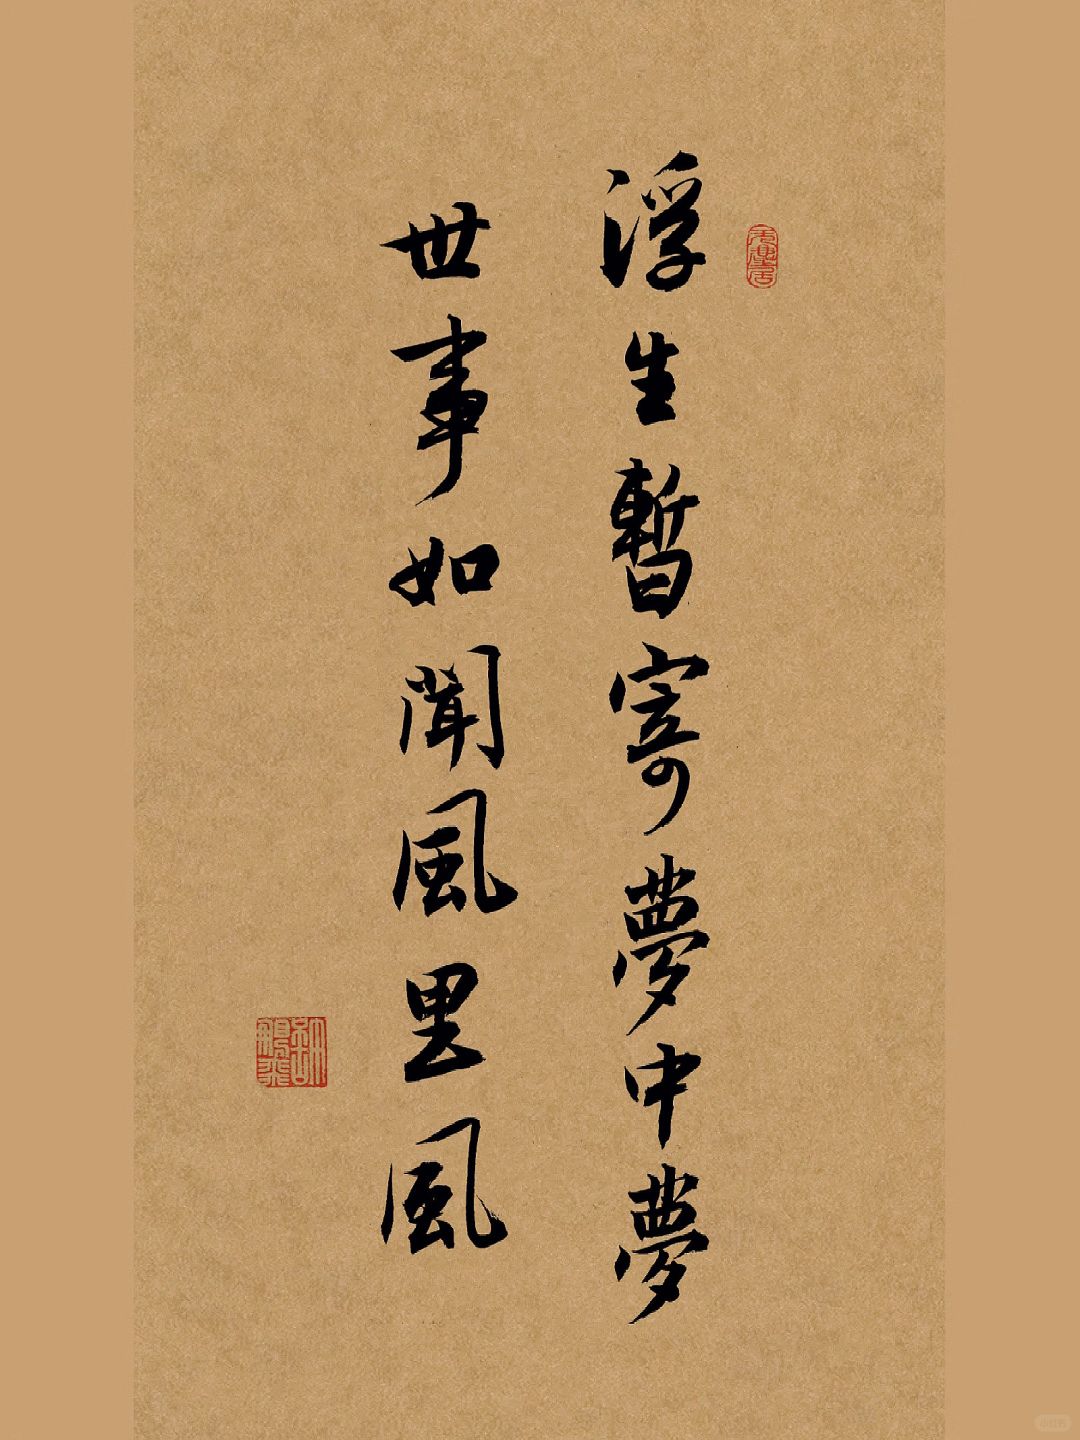 浮生暫寄夢中夢
世事如聞風里風